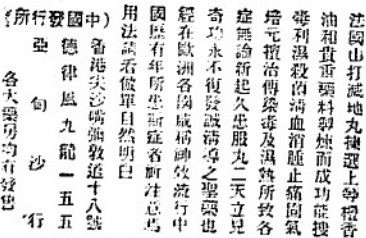 法國山打滅地丸揀選上等檀香
油和貴重藥料製煉而成功能搜
毒利濕殺菌清血消腫止痛固氣
培元擅治傳染毒及濕熱所致各
症無論新起久患服丸二天立見
奇功永不復發誠清淨之聖藥也
經在歐洲各國咸稱神效流行中
國歷有年所患斯症者祈注意焉
用法請看倣單自然明白
香港尖沙嘴彌敦道十八號
(中國發行所)
德律風九龍一五五
亞甸沙行
各大藥房均有發售